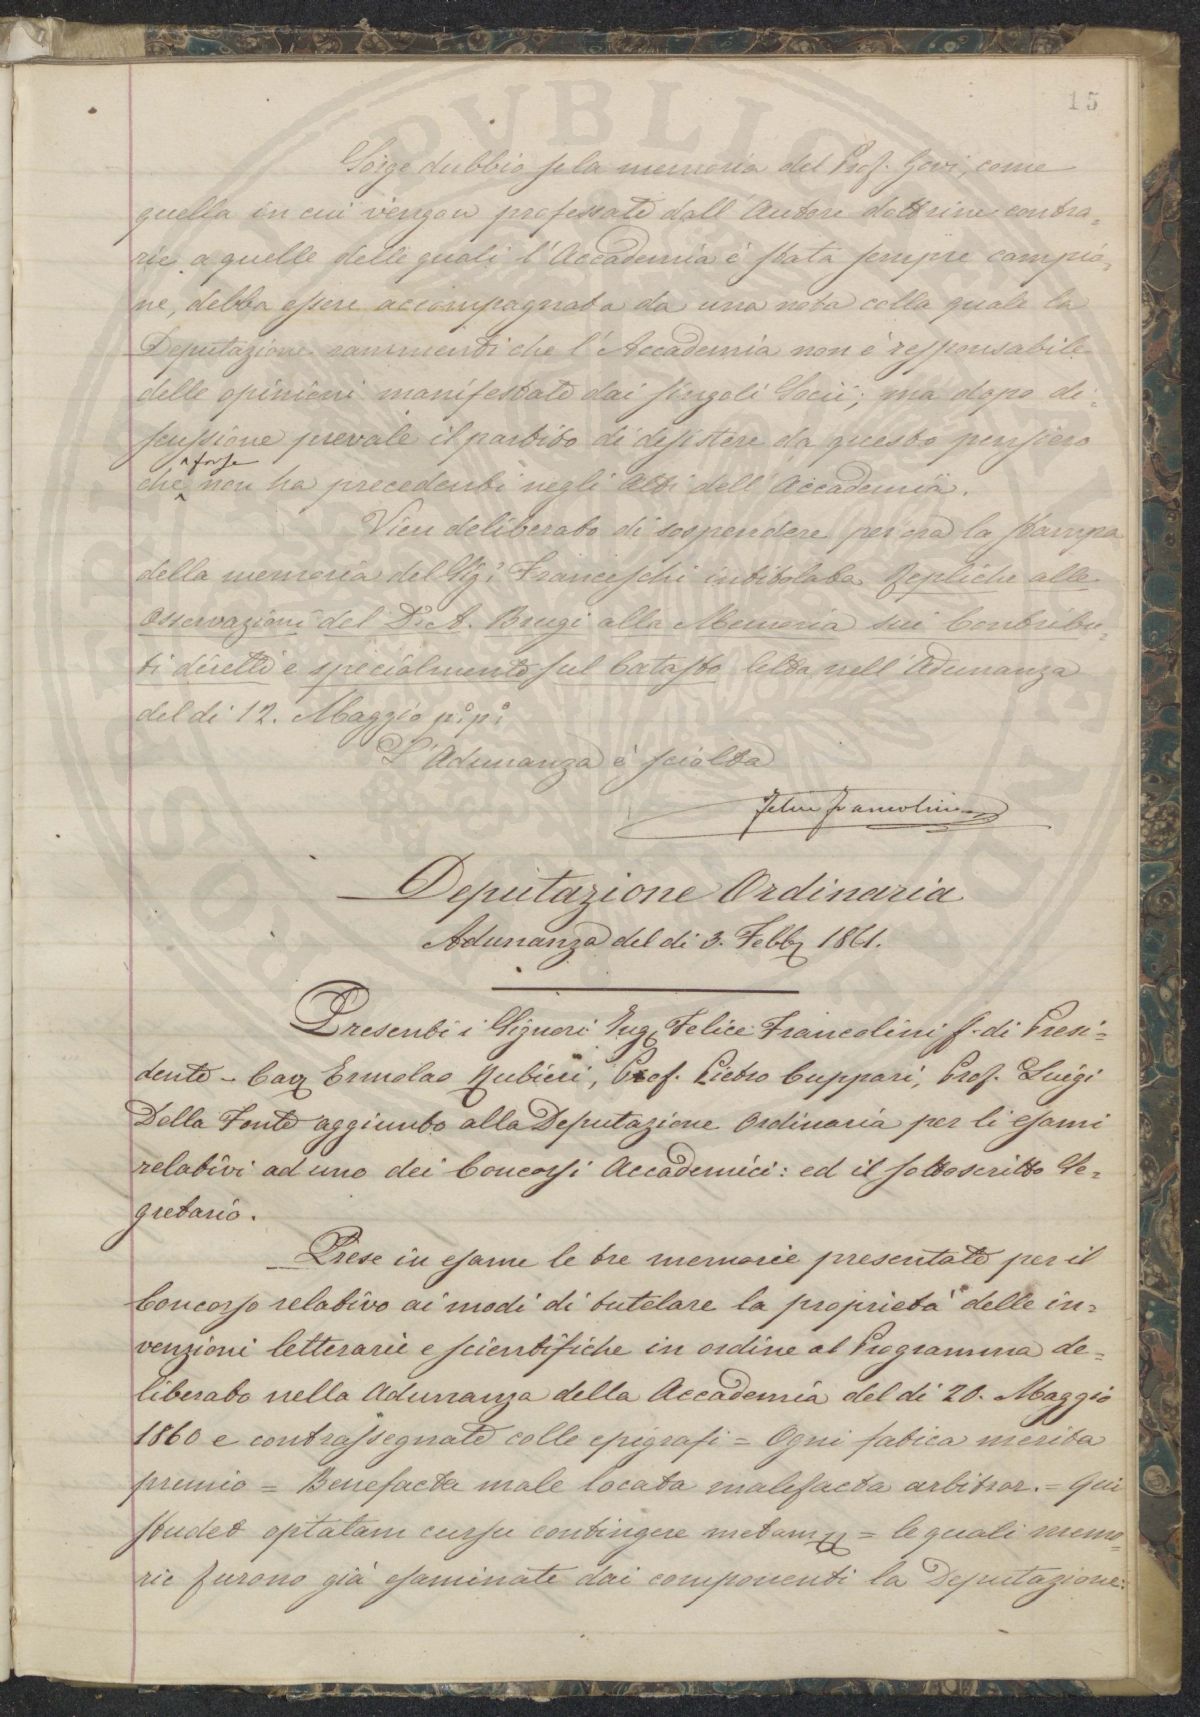 15
Sorge dubbio se la memoria del Prof. Govi, come
quella in cui vengon professate dall'Autore dottrine contra=
rie a quelle delle quali l'Accademia è stata sempre campio=
ne, debba essere accompagnata da una nota colla quale la
Deputazione rammenti che l'Accademia non è responsabile
delle opinioni manifestate dai singoli Socii; ma dopo di=
scussione prevale il partito di desistere da questo pensiero
che forse non ha precedenti negli Atti dell'Accademia.
Vien deliberato di sospendere per ora la stampa
della memoria del Sig. Franceschi intitolata Repliche alle
Osservazioni del D. A. Brugi alla Memoria sui Contribu=
ti diretti e specialmente sul Catasto letta nell'Adunanza
del di 12. Maggio p.p.
L'Adunanza è sciolta
Felice Francolini
Deputazione Ordinaria
Adunanza del di 3. Febb. 1861.
Presenti i Signori Ing. Felice Francolini f. di Presi=
dente - Cav. Ermolao Rubieri, Prof. Pietro Cuppari, Prof. Luigi
Della Fonte aggiunto alla Deputazione Ordinaria per li esami
relativi ad uno dei Concorsi Accademici: ed il sottoscritto Se=
gretario.
Prese in esame le tre memorie presentate per il
Concorso relativo ai modi di tutelare la proprietà delle in=
venzioni letterarie e scientifiche in ordine al Programma de=
liberato nella Adunanza della Accademia del di 20. Maggio
1860 e contrassegnate colle epigrafi = Ogni fatica merita
premio = Benefacta male locata malefacta arbitror. = Qui
studet optatam cursu contingere metam = le quali memo=
rie furono già esaminate dai componenti la Deputazione: